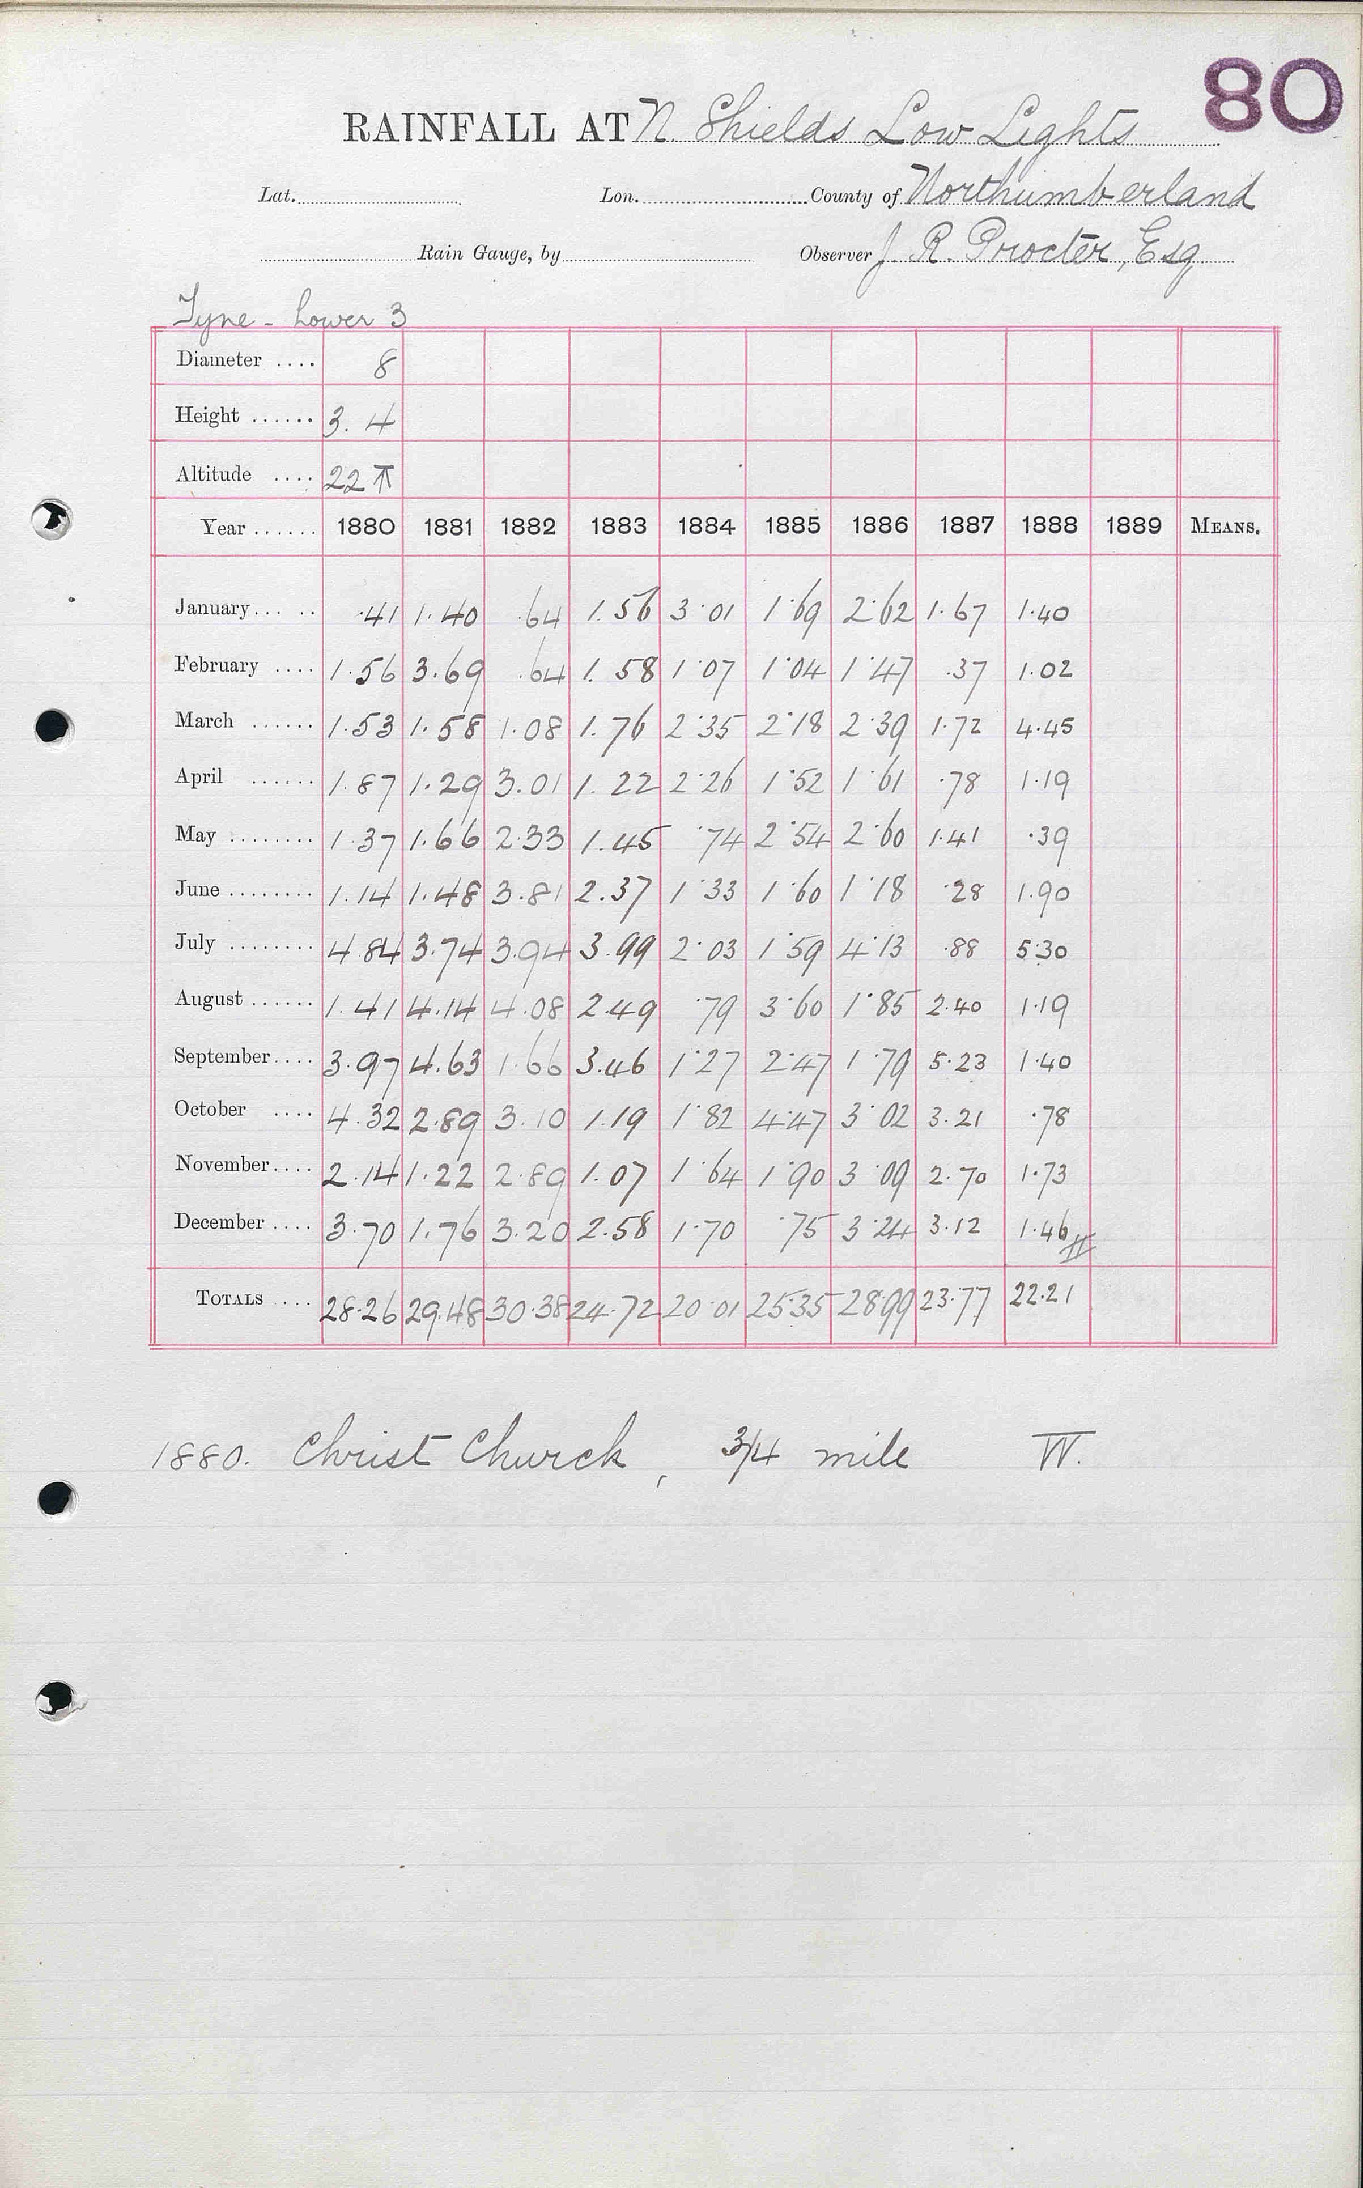 80
RAINFALL AT N Shields Low Lights
Lat. Lon. County of Northumberland
Rain Gauge, by Observer J R. Procter, Esq
Tyne - Lower 3
Diameter .... 8
Height ...... 3. 4
Altitude .... 22
Year ...... 1880 1881 1882 1883 1884 1885 1886 1887 1888 1889 MEANS.
January... .. .41 1.40 .64 1.56 3.01 1.69 2.62 1.67 1.40
February .... 1.56 3.69 .64 1.58 1.07 1.04 1.47 .37 1.02
March ...... 1.53 1.58 1.08 1.76 2.35 2.18 2.39 1.72 4.45
April ...... 1.87 1.29 3.01 1.22 2.26 1.52 1.61 .78 1.19
May ........ 1.37 1.66 2.33 1.45 .74 2.54 2.60 1.41 .39
June ........ 1.14 1.48 3.81 2.37 1.33 1.60 1.18 .28 1.90
July ........ 4.84 3.74 3.94 3.99 2.03 1.59 4.13 .88 5.30
August ...... 1.41 4.14 4.08 2.49 .79 3.60 1.85 2.40 1.19
September.... 3.97 4.63 1.66 3.46 1.27 2.47 1.79 5.23 1.40
October .... 4.32 2.89 3.10 1.19 1.82 4.47 3.02 3.21 .78
November.... 2.14 1.22 2.89 1.07 1.64 1.90 3.09 2.70 1.73
December .... 3.70 1.76 3.20 2.58 1.70 .75 3.24 3.12 1.46
TOTALS .... 28.26 29.48 30.38 24.72 20.01 25.35 28.99 23.77 22.21
1880. Christ Church, 3/4 mile W.